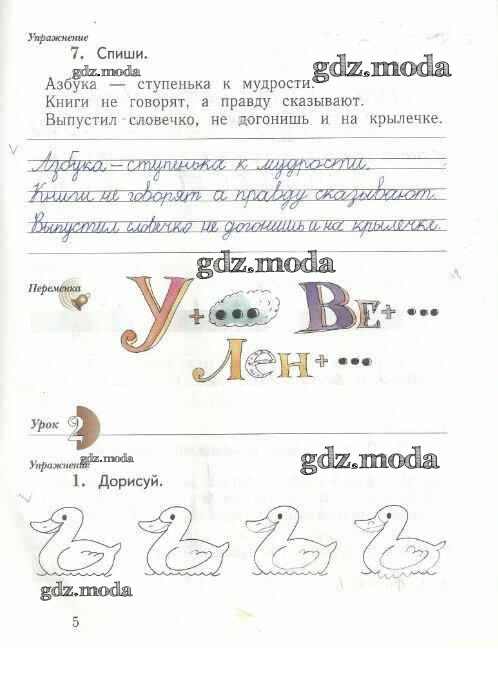 Упражнение
7. Спиши.
gdz.moda
gdz.moda
Азбука — ступенька к мудрости.
Книги не говорят, а правду сказывают.
Выпустил словечко, не догонишь и на крылечке.
Азбука – ступенька к мудрости.
Книги не говорят а правду сказывают.
Выпустил словечко не догонишь и на крылечке.
gdz.moda
Переменка
У + ••• Ве + •••
Лен + •••
Урок 2
gdz.moda
gdz.moda
Упражнение
1. Дорисуй.
gdz.moda
5